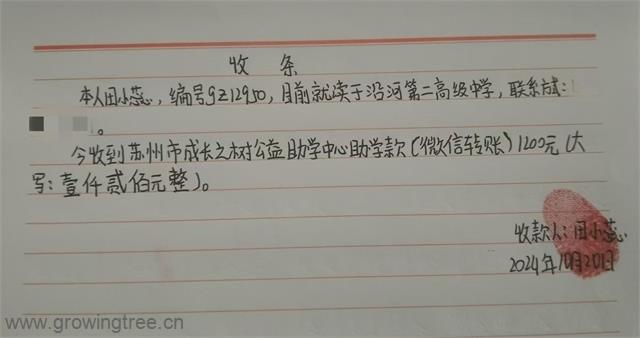 收条
本人田小蕊,编号gz12950,目前就读于沿河第二高级中学,联系方式:
。
今收到苏州市成长之树公益助学中心助学款(微信转账)1200元(大
写:壹仟贰佰元整)。
收款人:田小蕊
2024年10月20日
www.growingtree.cn